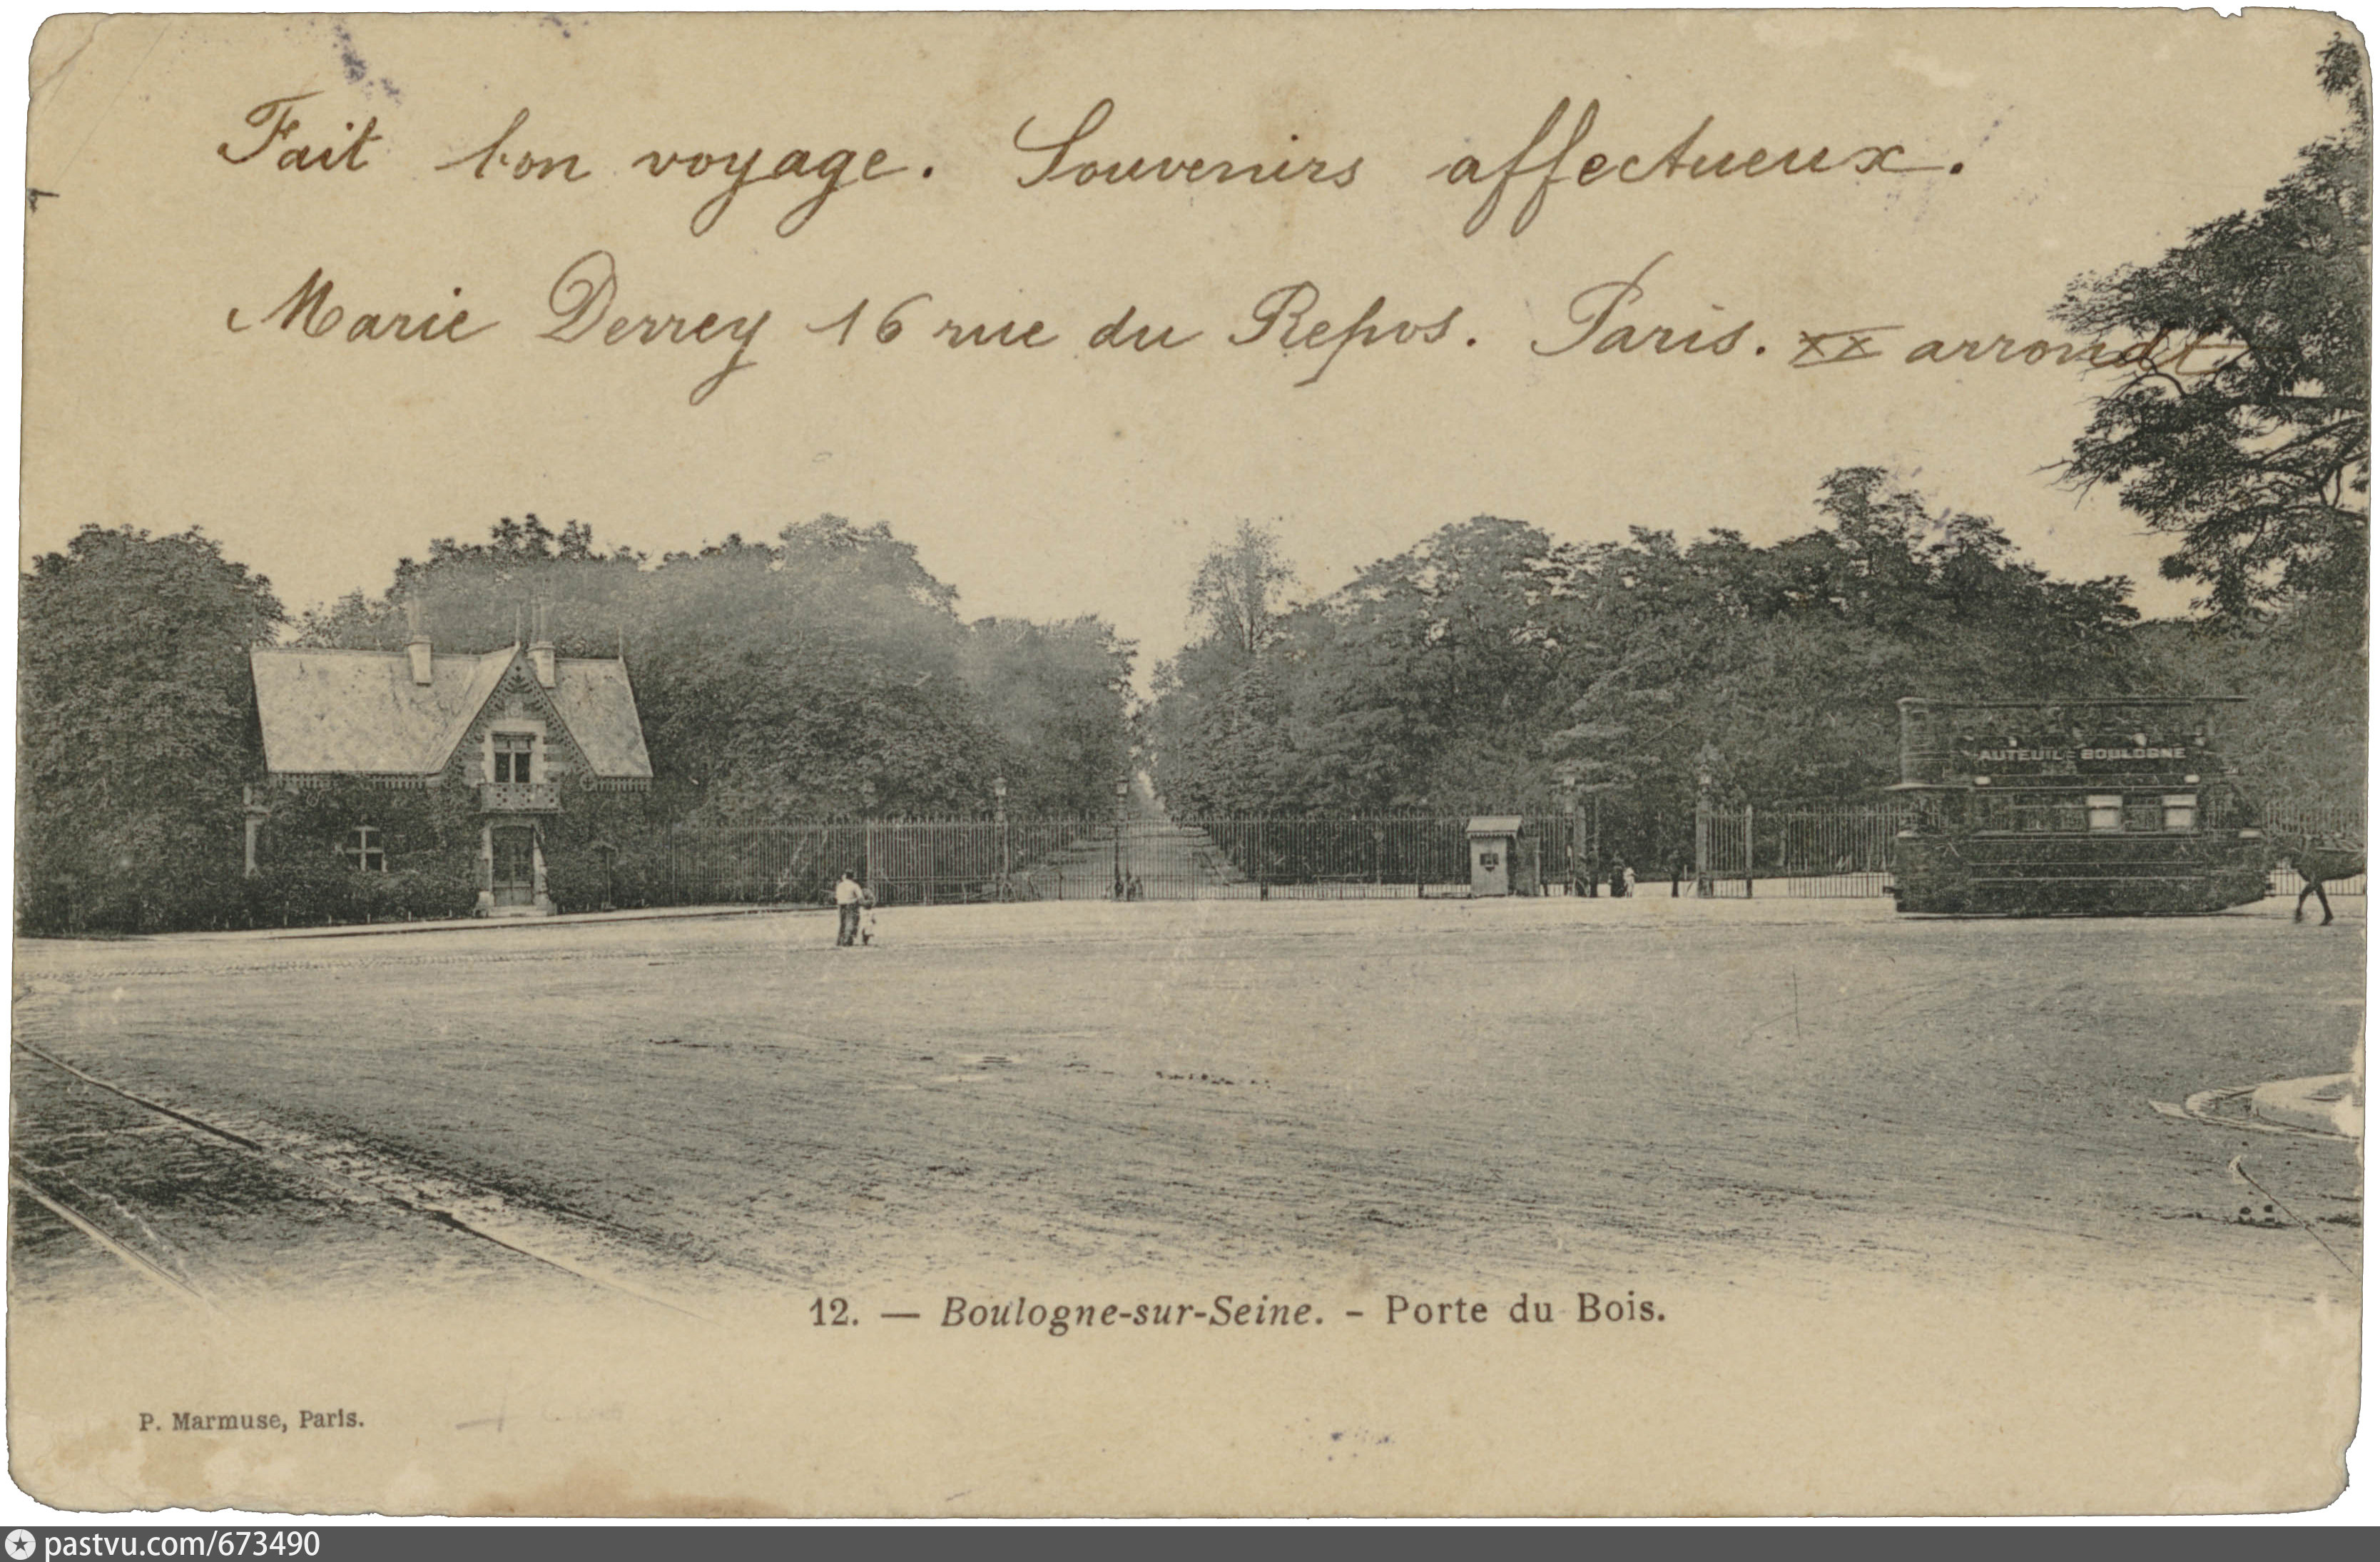 Fait bon voyage. Souvenirs affectueux.
Marie Derrey 16 rue du Repos. Paris. XX arrondt
AUTEUIL - BOULOGNE
12. — Boulogne-sur-Seine. - Porte du Bois.
P. Marmuse, Paris.
pastvu.com/673490